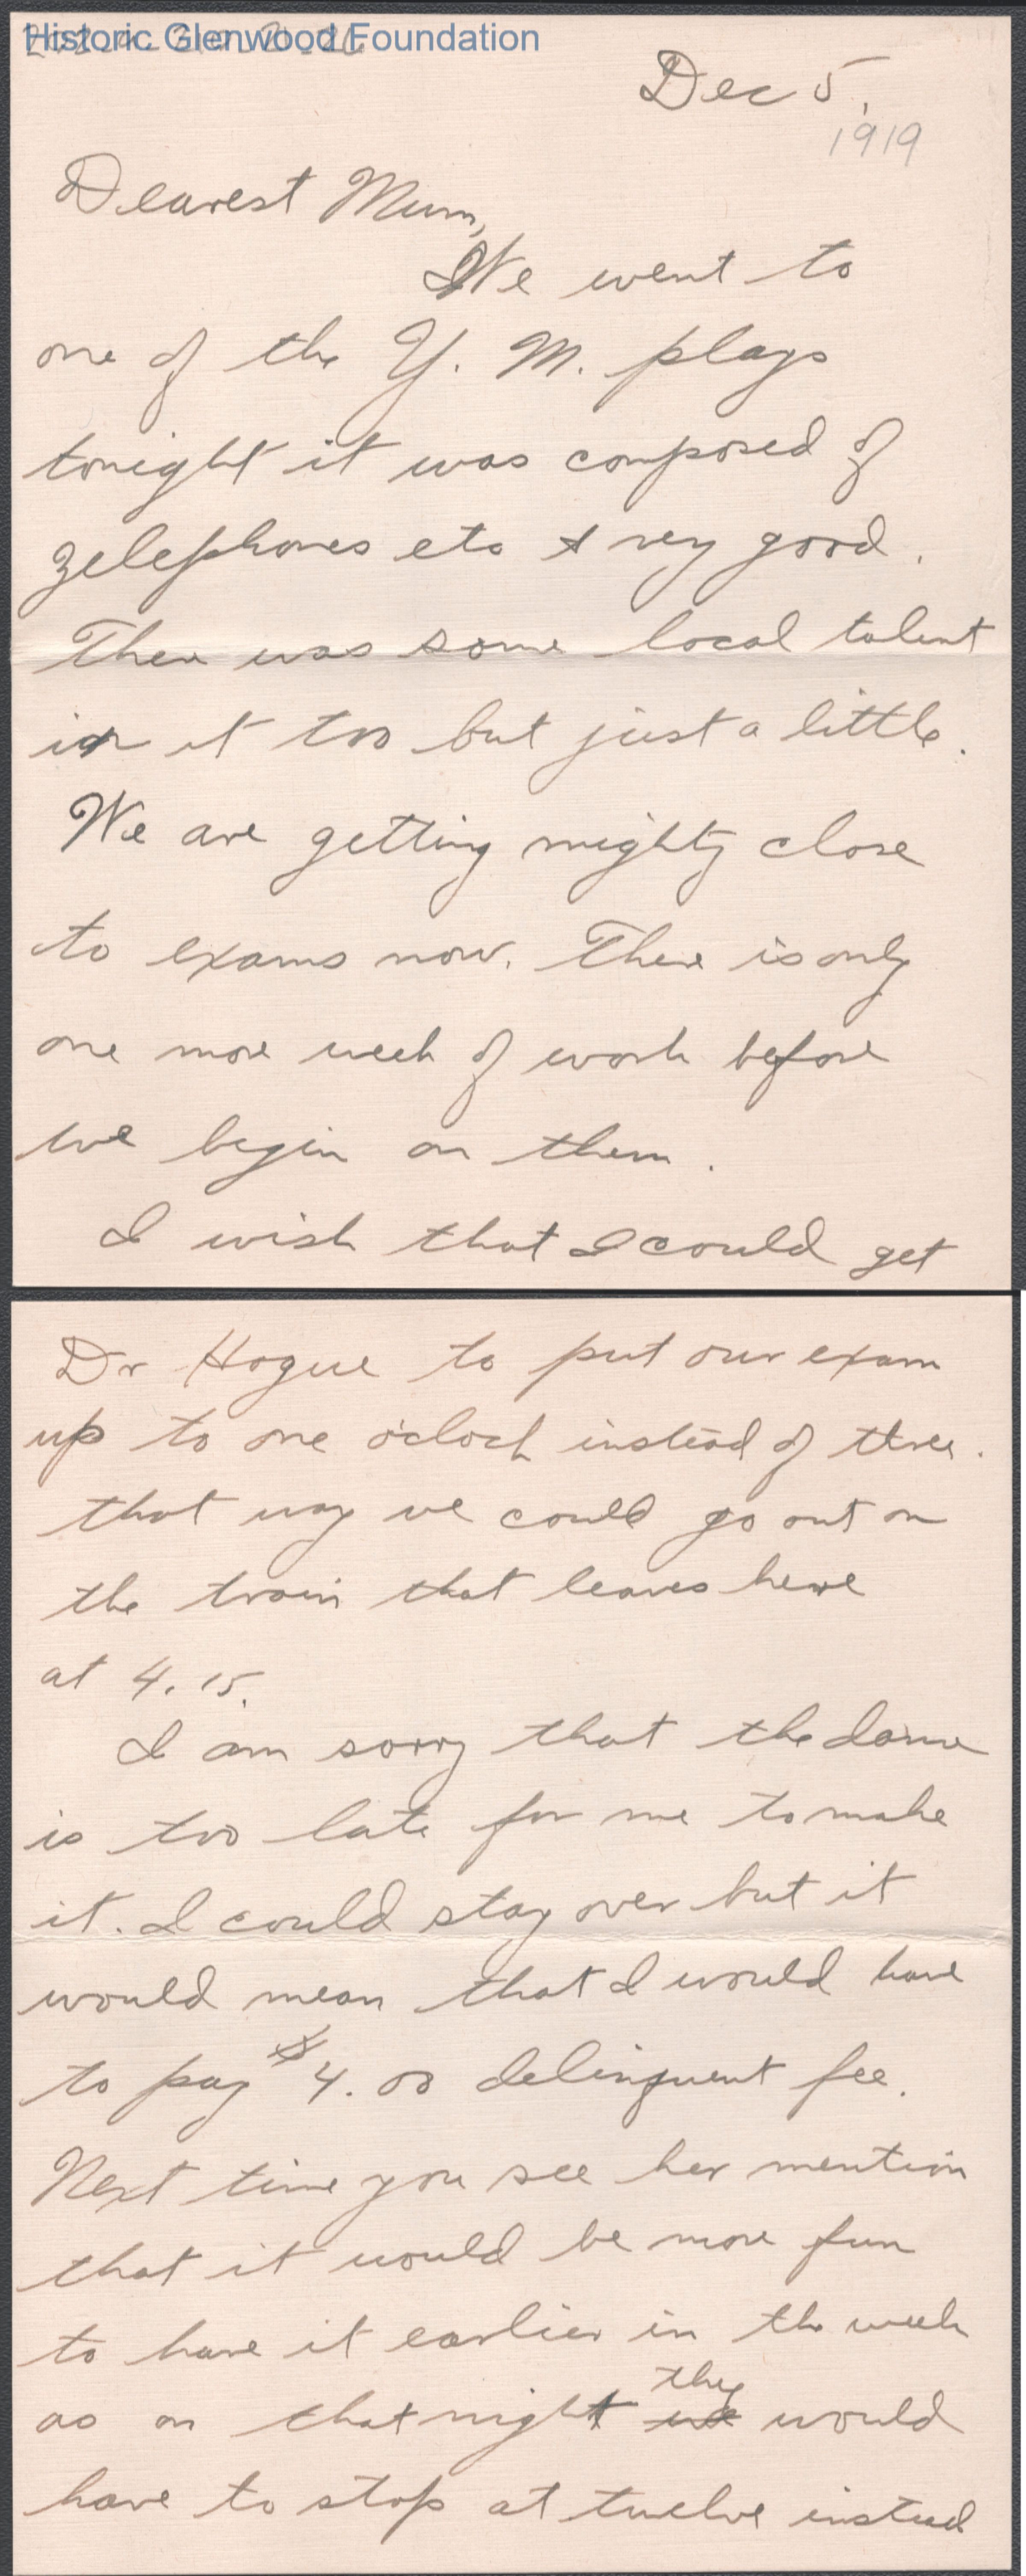 Historic Glenwood Foundation
Dec 5,
1919
Dearest Mum,
We went to
one of the Y. M. plays
tonight it was composed of
zelephones etc & very good.
There was some local talent
in it too but just a little.
We are getting mighty close
to exams now. There is only
one more week of work before
we begin on them.
I wish that I could get
Dr Hogue to put our exam
up to one o'clock instead of three.
that way we could go out on
the train that leaves here
at 4.15.
I am sorry that the dance
is too late for me to make
it. I could stay over but it
would mean that I would have
to pay $4.00 delinquent fee.
Next time you see her mention
that it would be more fun
to have it earlier in the week
as on that night they would
have to stop at twelve instead